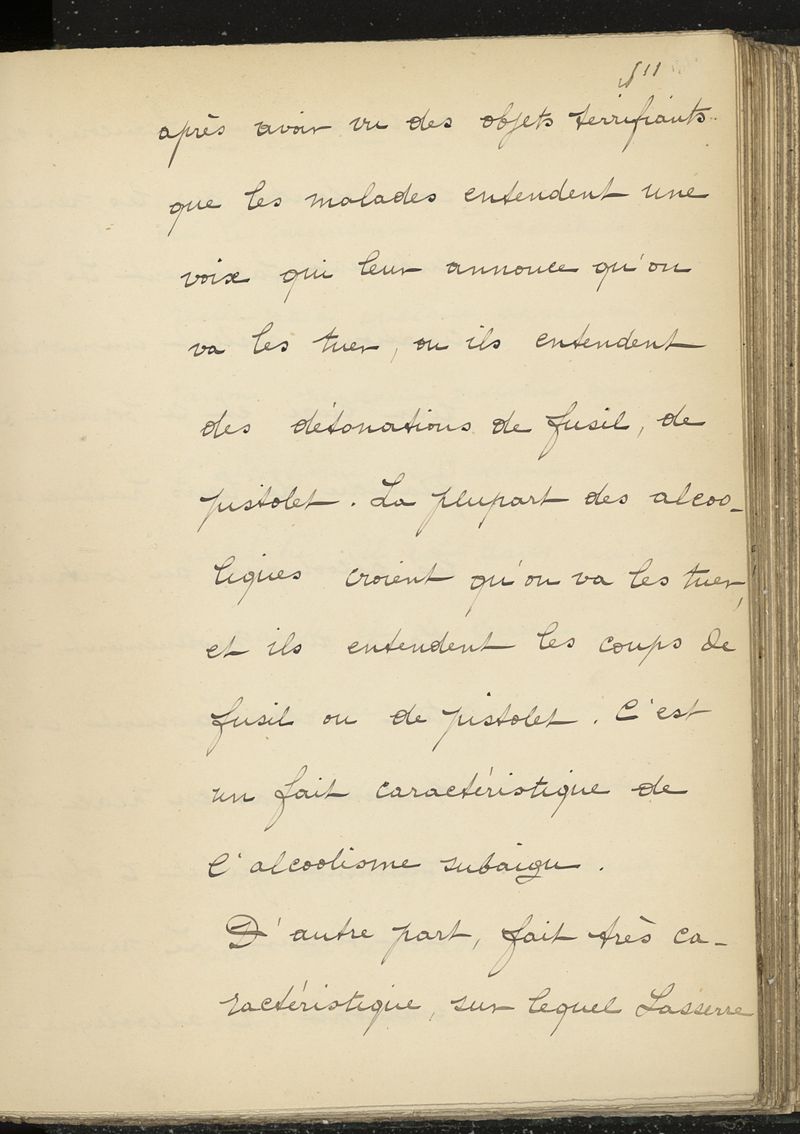 511
après avoir vu des objets terrifiants
que les malades entendent une
voix qui leur annonce qu'on
va les tuer, ou ils entendent
des détonations de fusil, de
pistolet. La plupart des alcoo-
liques croient qu'on va les tuer,
et ils entendent les coups de
fusil ou de pistolet. C'est
un fait caractéristique de
l'alcoolisme subaigu.
D'autre part, fait très ca-
ractéristique, sur lequel Lasserre